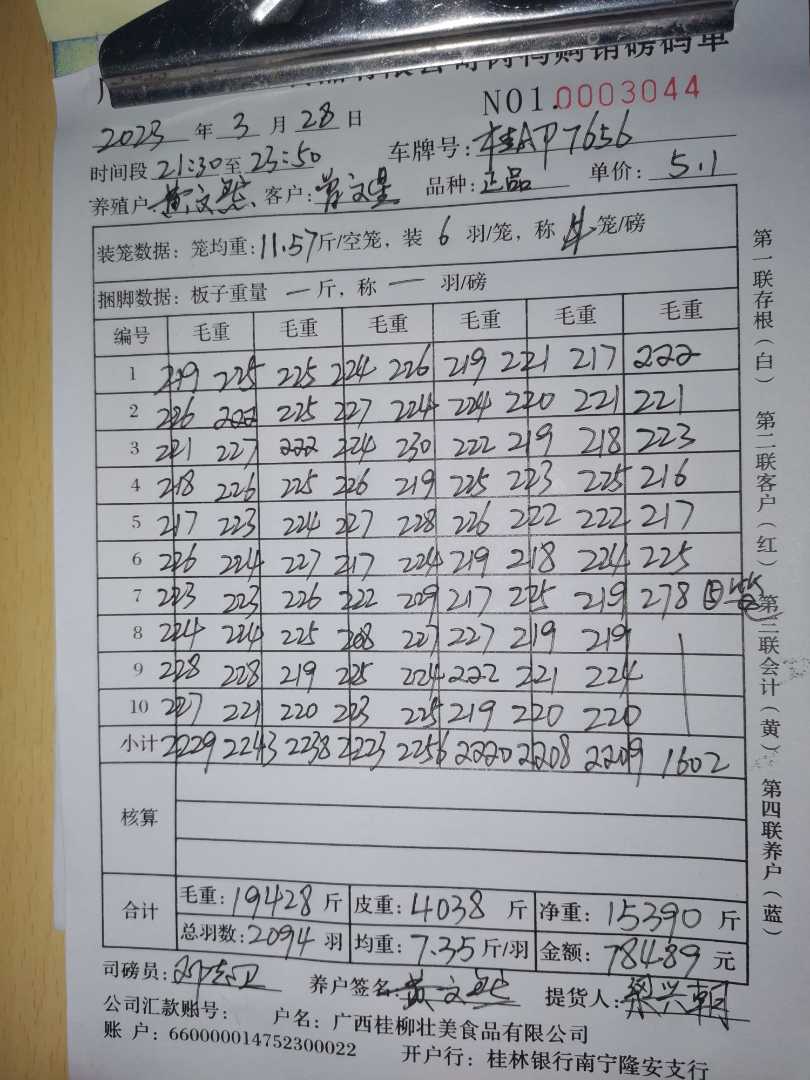 品有限公司肉鸭购销磅码单
NO1.0003044
2023年3月28日
时间段21:30至23:50 车牌号:桂AP7656
养殖户 客户:曾文星 品种:正品 单价:5.1
装笼数据:笼均重:11.57斤/空笼,装6羽/笼,称4笼/磅
捆脚数据:板子重量一斤,称一羽/磅
编号 毛重 毛重 毛重 毛重 毛重 毛重
1 219 225 225 224 226 219 221 217 222
2 226 222 225 227 224 224 220 221 221
3 221 227 222 224 230 222 219 218 223
4 218 226 225 226 219 225 223 225 216
5 217 223 224 227 228 226 222 222 217
6 226 224 227 217 224 219 218 224 225
7 223 223 226 222 209 217 225 219 278 ⑤笼
8 224 224 225 208 227 227 219 219
9 228 228 219 225 224 222 221 224
10 227 221 220 223 225 219 220 220
小计 2229 2243 2238 2223 2256 2220 2208 2209 1602
核算
合计 毛重:19428斤 皮重:4038斤 净重:15390斤
总羽数:2094羽 均重:7.35斤/羽 金额:78489元
司磅员: 养户签名: 提货人:梁兴朝
公司汇款账号: 户名:广西桂柳壮美食品有限公司
账户:660000014752300022 开户行:桂林银行南宁隆安支行
第一联存根(白) 第二联客户(红) 第三联会计(黄) 第四联养户(蓝)